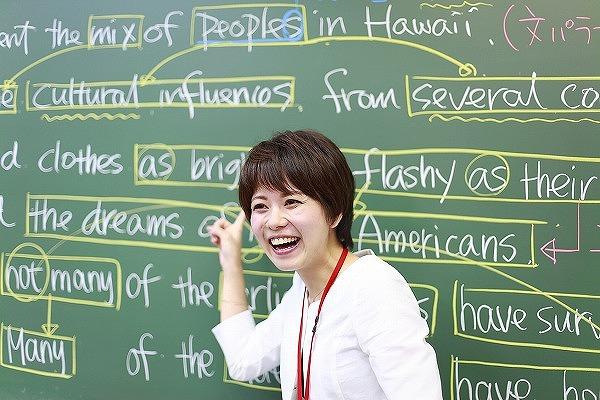 the mix of peoples in Hawaii. (文パラ
cultural influences from several
clothes as flashy as their
the dreams Americans.
not many of the have
Many of the have